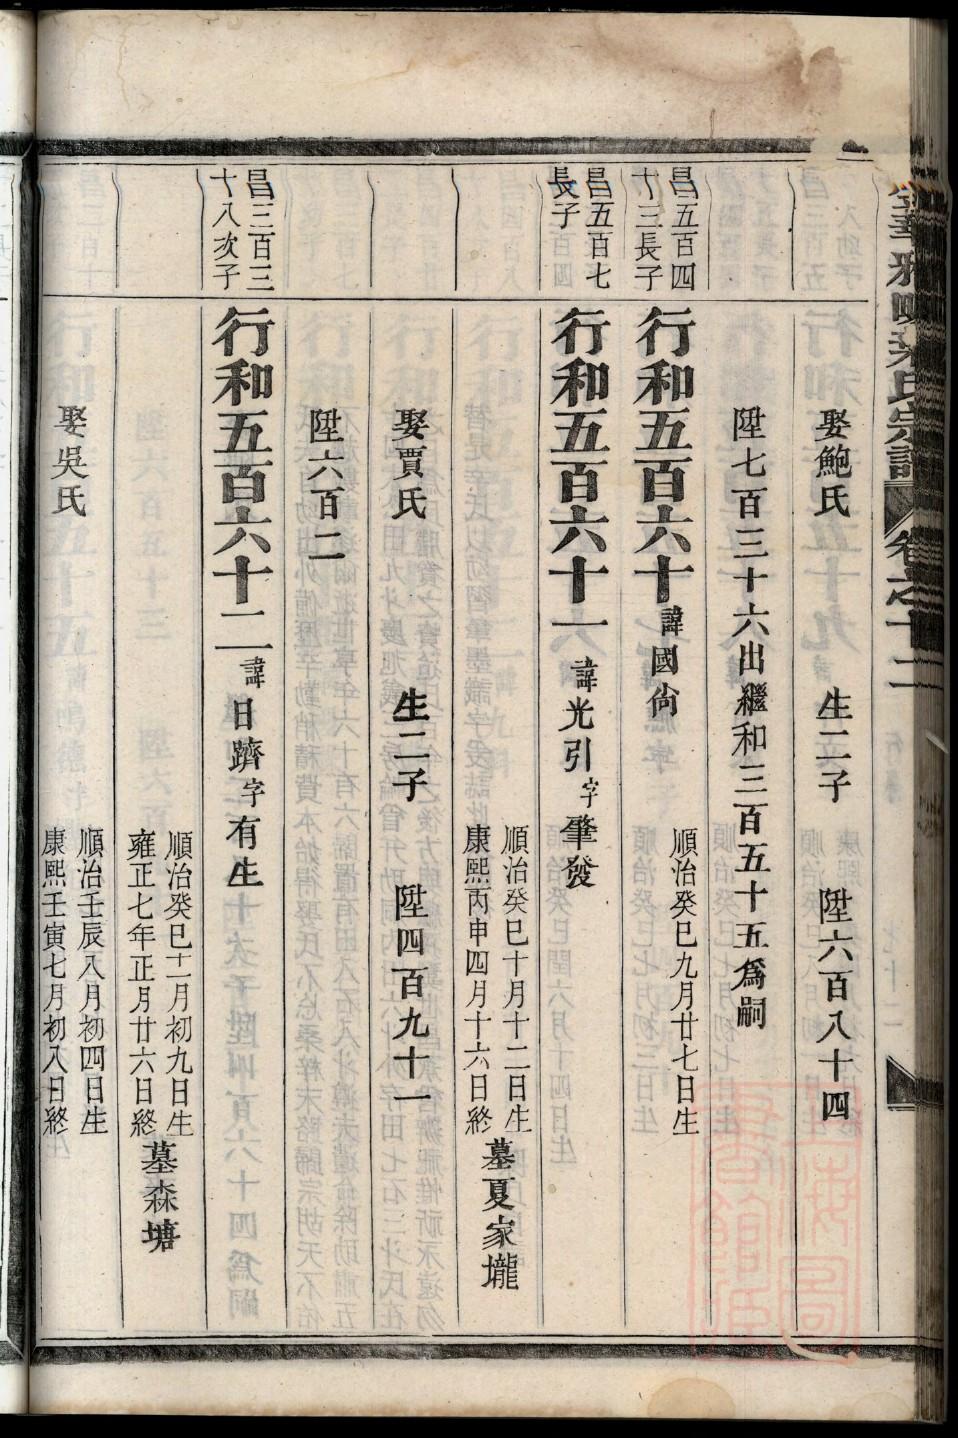 氏宗譜 卷之十二
娶鮑氏 生二子 陞六百八十四
陞七百三十六出繼和三百五十五爲嗣
昌五百四十三長子
行和五百六十 諱國尙 順治癸巳九月廿七日生
昌五百七長子
行和五百六十一 諱光引 字肇發
順治癸巳十月十二日生
康熙丙申四月十六日終
墓夏家壠
娶賈氏 生二子 陞四百九十一
陞六百二
昌三百三十八次子
行和五百六十二 諱日躋 字有生
順治癸巳十二月初九日生
雍正七年正月廿六日終
墓森塘
娶吳氏
順治壬辰八月初四日生
康熙壬寅七月初八日終